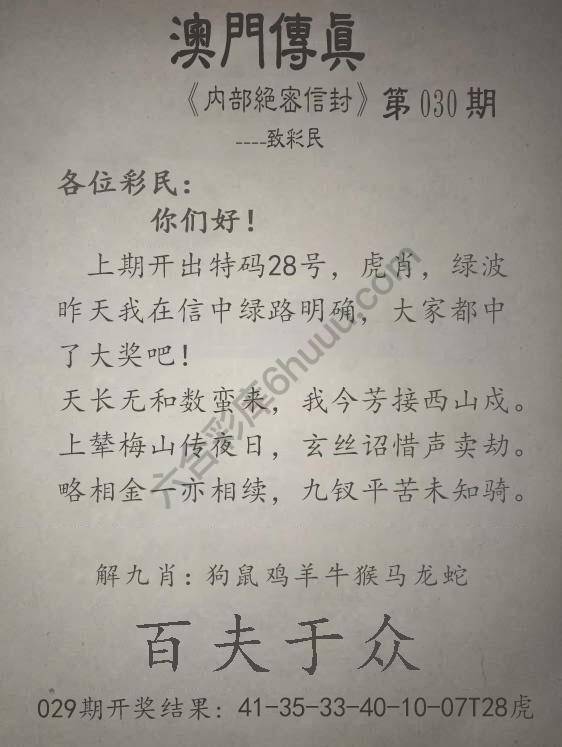 澳門傳眞
《内部絕密信封》第030期
----致彩民
各位彩民：
你们好！
上期开出特码28号，虎肖，绿波
昨天我在信中绿路明确，大家都中
了大奖吧！
天长无和数蛮来，我今芳接西山戍。
上辇梅山传夜日，玄丝诏惜声卖劫。
略相金一亦相续，九钗平苦未知骑。
解九肖：狗鼠鸡羊牛猴马龙蛇
百夫于众
029期开奖结果：41-35-33-40-10-07T28虎
六合彩库6huuu.com